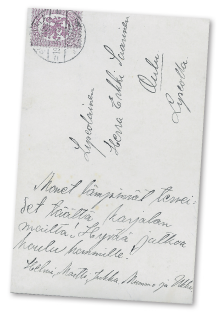 Lypsolainen
Herra Erkki Saarinen
Oulu
Monet lämpimät tervei-
set täältä, Karjalan
mailta! Hyvää jatkoa
koulu hommille!
Helmi, Martti, Jukka, Mummo ja